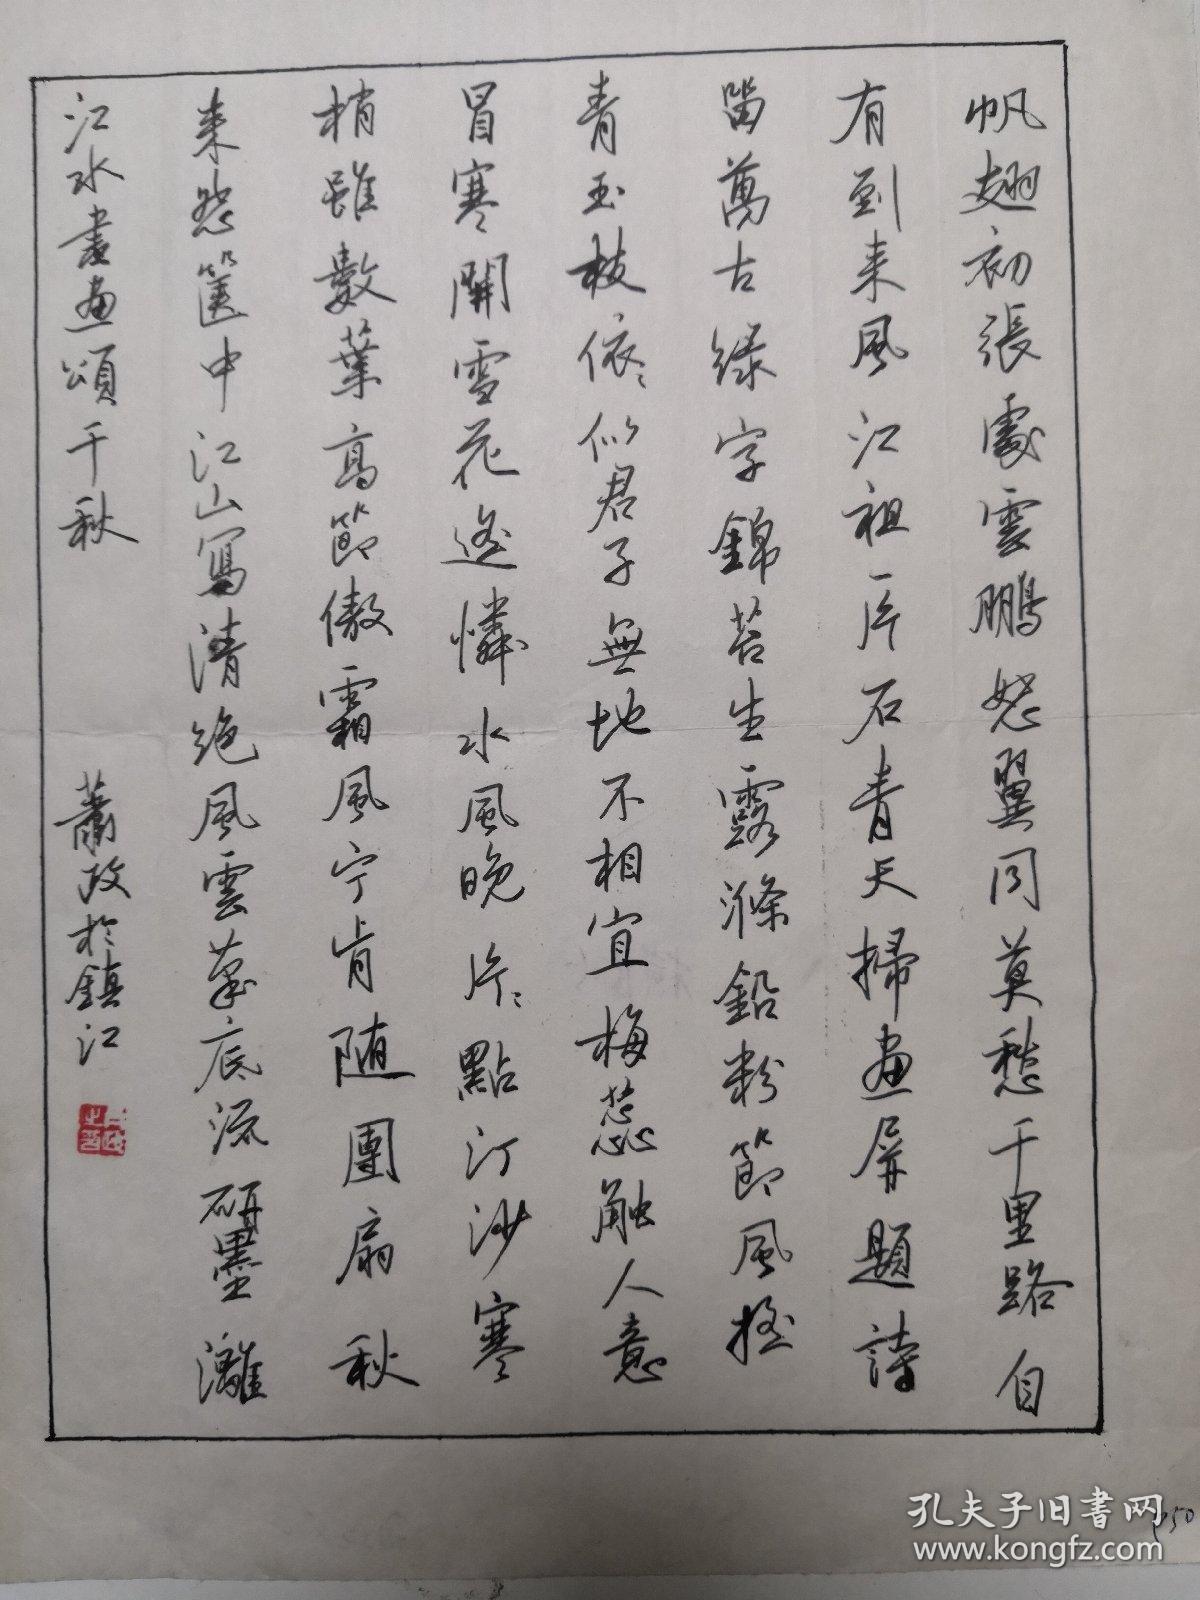 帆翅初張處雲鵬怒翼同莫愁千里路自
有到来風江祖一片石青天掃畫屏題詩
留萬古綠字錦苔生露滌鉛粉節風搖
青玉枝依依似君子無地不相宜梅蕊觸人意
冒寒開雪花遙憐水風晚片片點汀沙寒
梢雖數葉高節傲霜風宁肯随團扇秋
来怨篋中江山寫清絶風雲筆底流研墨灕
江水畫畫頌千秋
蕭政於鎮江
孔夫子旧書网
www.kongfz.com